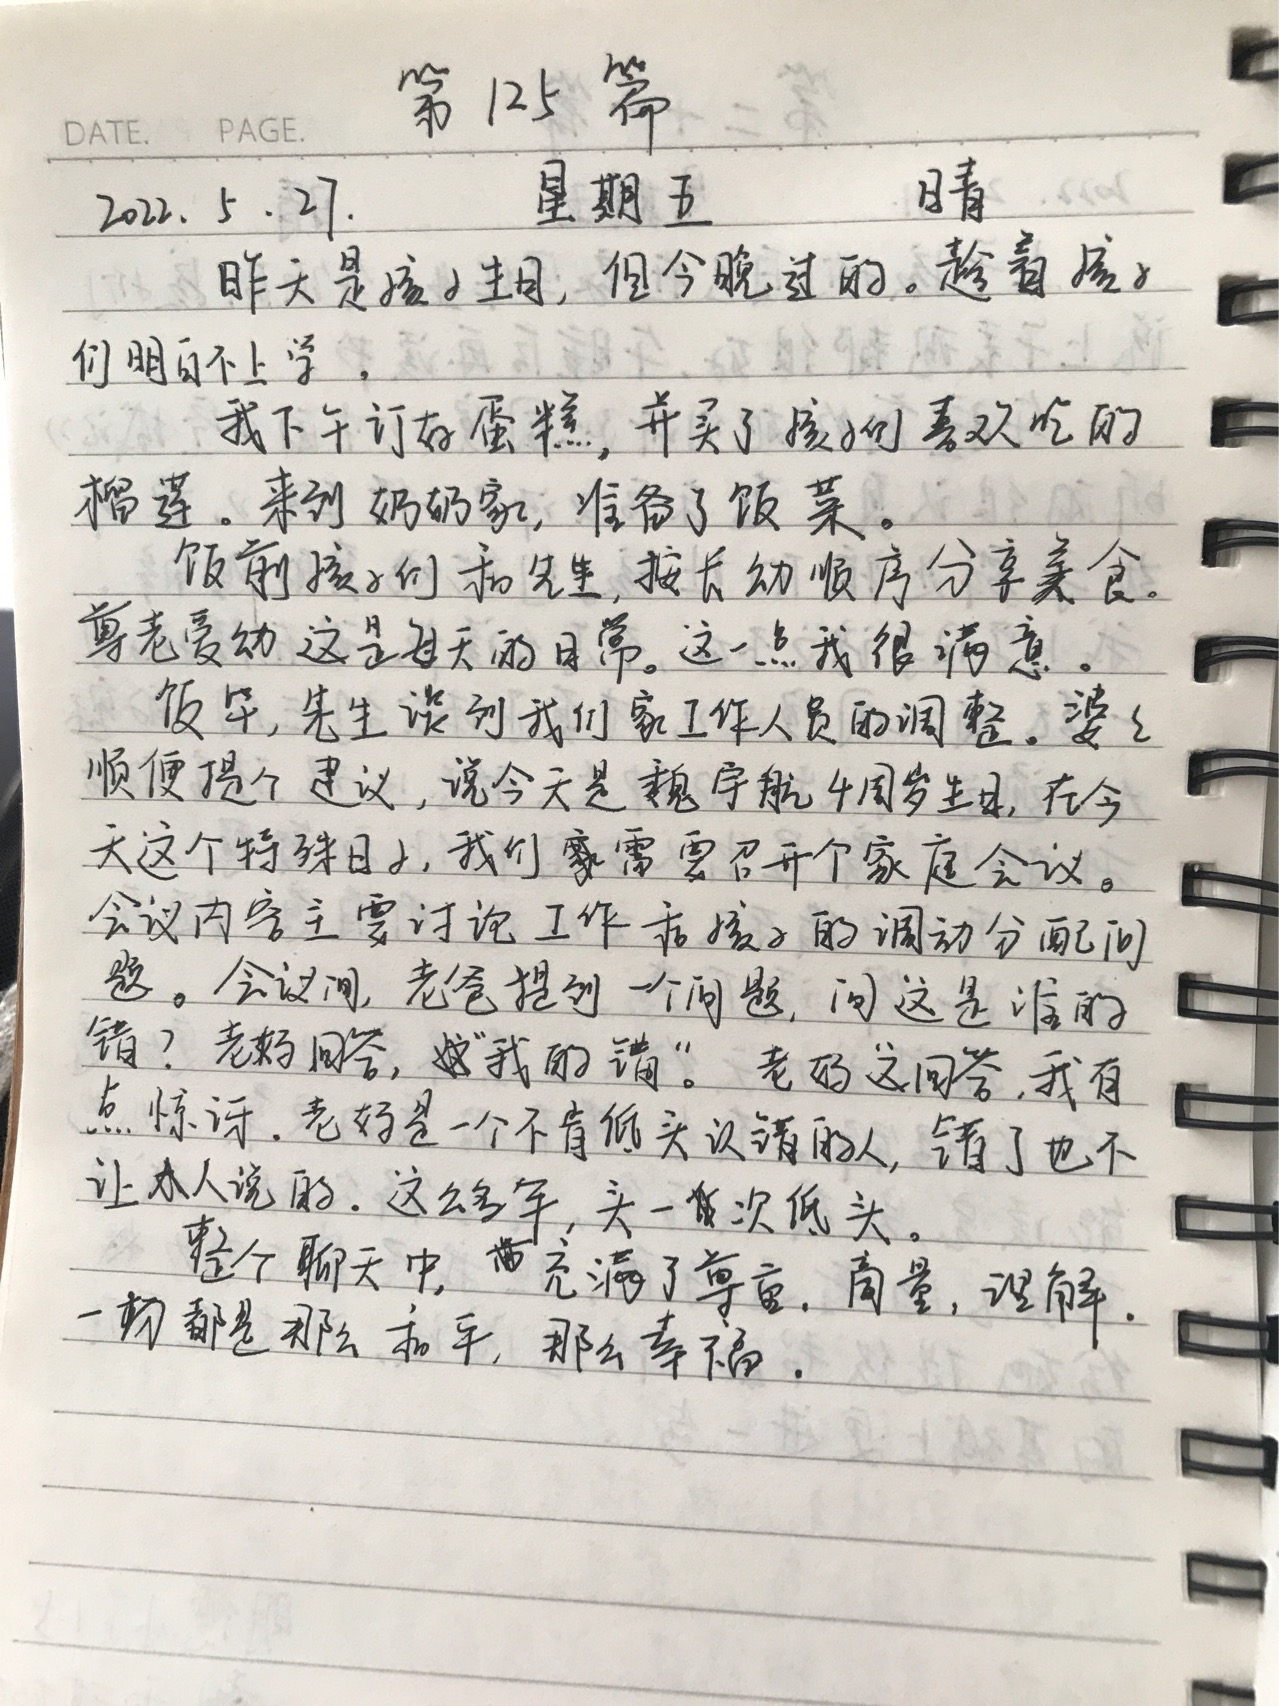 第125篇
DATE. PAGE.
2022.5.27. 星期五 晴
昨天是孩子生日，但今晚过的。趁着孩子
们明日不上学。
我下午订好蛋糕，并买了孩子们喜欢吃的
榴莲。来到奶奶家，准备了饭菜。
饭前孩子们和先生，按长幼顺序分享美食。
尊老爱幼这是每天的日常。这一点我很满意。
饭毕，先生谈到我们家工作人员的调整。婆婆
顺便提个建议，说今天是魏宇航4周岁生日，在今
天这个特殊日子，我们家需要召开个家庭会议。
会议内容主要讨论工作和孩子的调动分配问
题。会议间，老爸提到一个问题，问这是谁的
错？老妈回答，“我的错”。老妈这回答，我有
点惊讶．老妈是一个不肯低头认错的人，错了也不
让人说的．这么多年，头一次低头。
整个聊天中，充满了尊重．商量，理解．
一切都是那么和平，那么幸福．